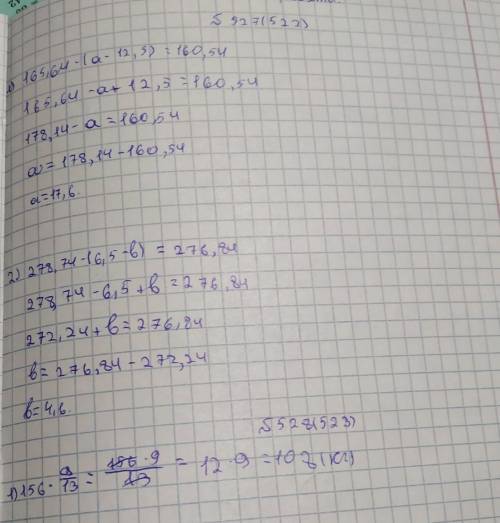 №527(522)
1) 165,64-(a-12,5)=160,54
165,64-a+12,5=160,54
178,14-a=160,54
a=178,14-160,54
a=17,6.
2) 278,74-(6,5-b)=276,84
278,74-6,5+b=276,84
272,24+b=276,84
b=276,84-272,24
b=4,6.
№528(523)
1) 156·9/13=156·9/13=12·9=108(км)